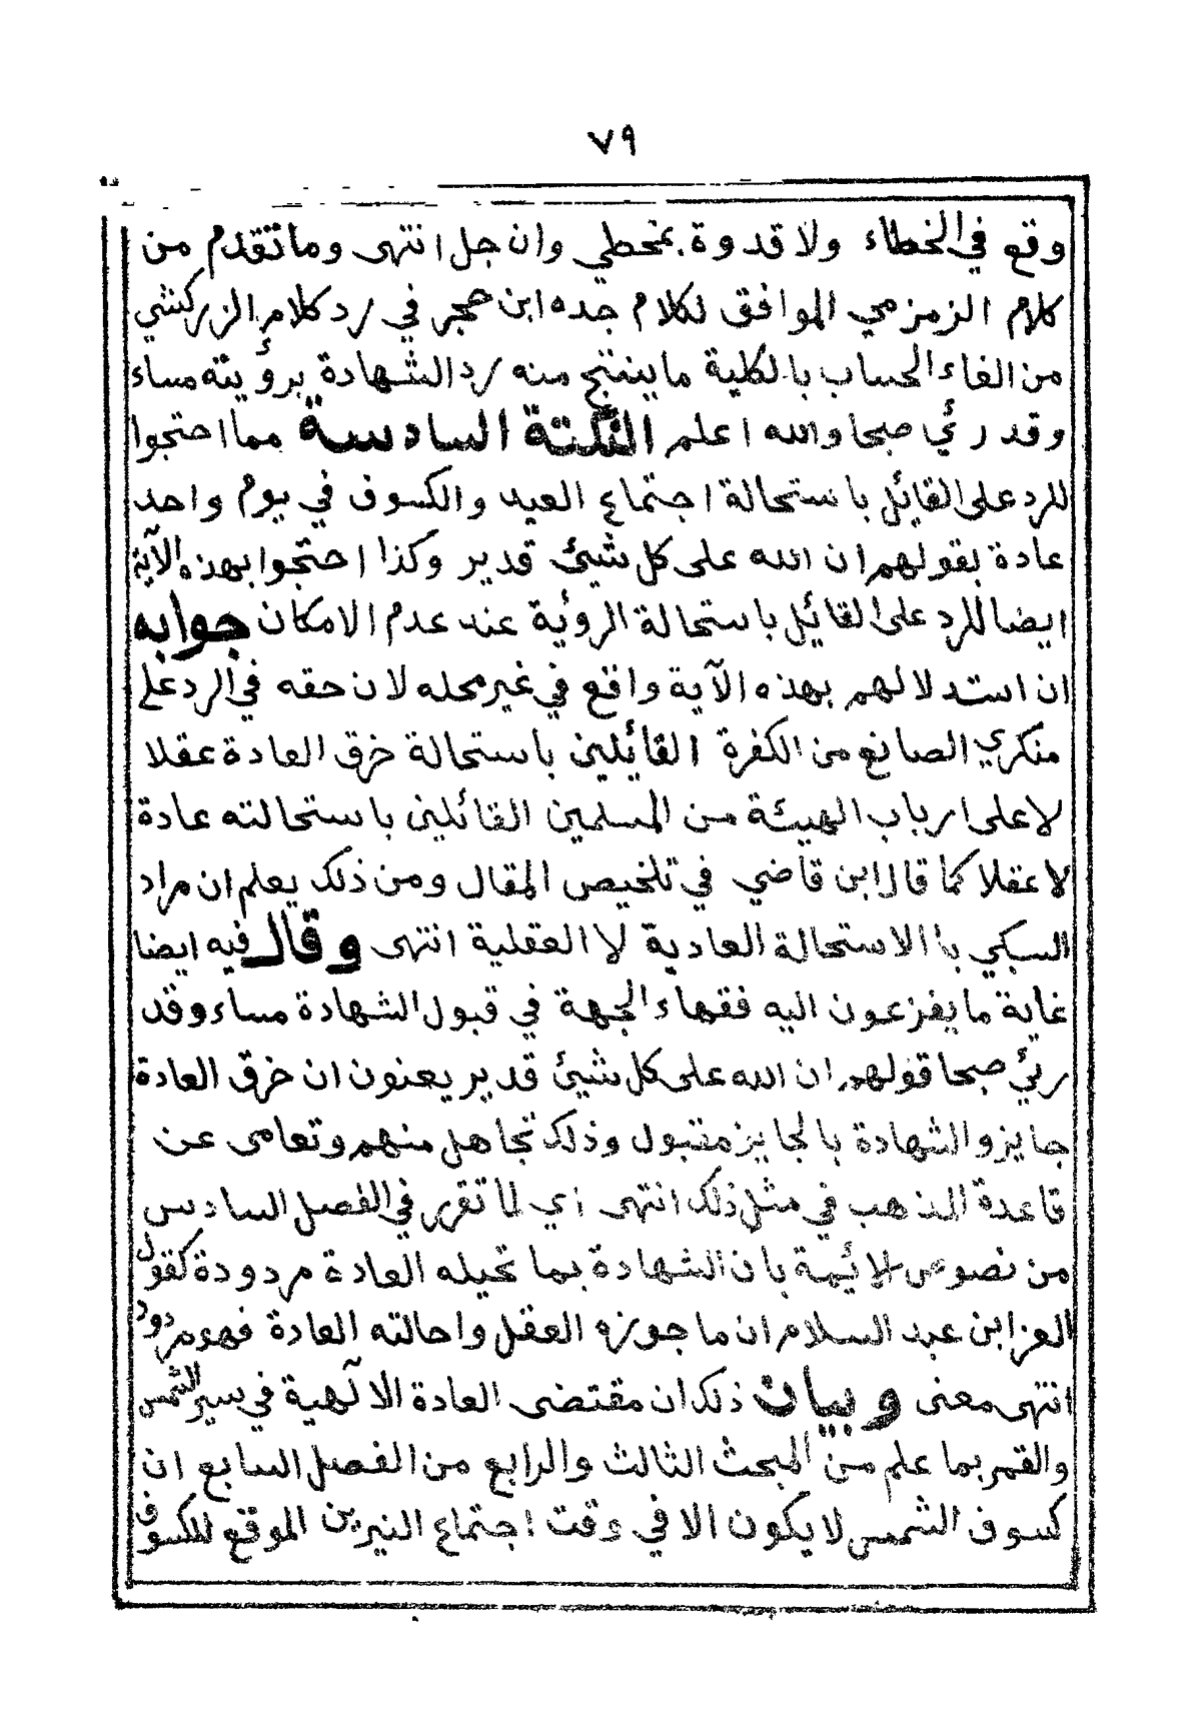 ٧٩
وقع في الخطاء ولا قدوة بمخطي وان جل انتهى وما تقدم من
كلام الزمزمي الموافق لكلام جده ابن حجر في رد كلام الزركشي
من الغاء الحساب بالكلية ما ينتج منه رد الشهادة برؤيته مساء
وقد رئي صبحا والله اعلم النكتة السادسة مما احتجوا
للرد على القائل باستحالة اجتماع العيد والكسوف في يوم واحد
عادة بقولهم ان الله على كل شيئ قدير وكذا احتجوا بهذه الآية
ايضا للرد على القائل باستحالة الرؤية عند عدم الامكان جوابه
ان استدلالهم بهذه الآية واقع في غير محله لان حقه في الرد على
منكري الصانع من الكفرة القائلين باستحالة خرق العادة عقلا
لا على ارباب الهيئة من المسلمين القائلين باستحالته عادة
لا عقلا كما قال ابن قاضي في تلخيص المقال ومن ذلك يعلم ان مراد
السبكي با الاستحالة العادية لا العقلية انتهى وقال فيه ايضا
غاية ما يفزعون اليه فقهاء الجهة في قبول الشهادة مساء وقد
رئي صبحا قولهم ان الله على كل شيئ قدير يعنون ان خرق العادة
جايز والشهادة بالجايز مقبول وذلك تجاهل منهم وتعامى عن
قاعدة المذهب في مثل ذلك انتهى اي لما تقرر في الفصل السادس
من نصوص الائيمة بان الشهادة بما تحيله العادة مردودة كقول
العز ابن عبد السلام ان ما جوزه العقل واحالته العادة فهو مردود
انتهى معنى وبيان ذلك ان مقتضى العادة الآلهية في سير الشمس
والقمر بما علم من المبحث الثالث والرابع من الفصل السابع ان
كسوف الشمس لا يكون الا في وقت اجتماع النيرين الموقع للكسوف